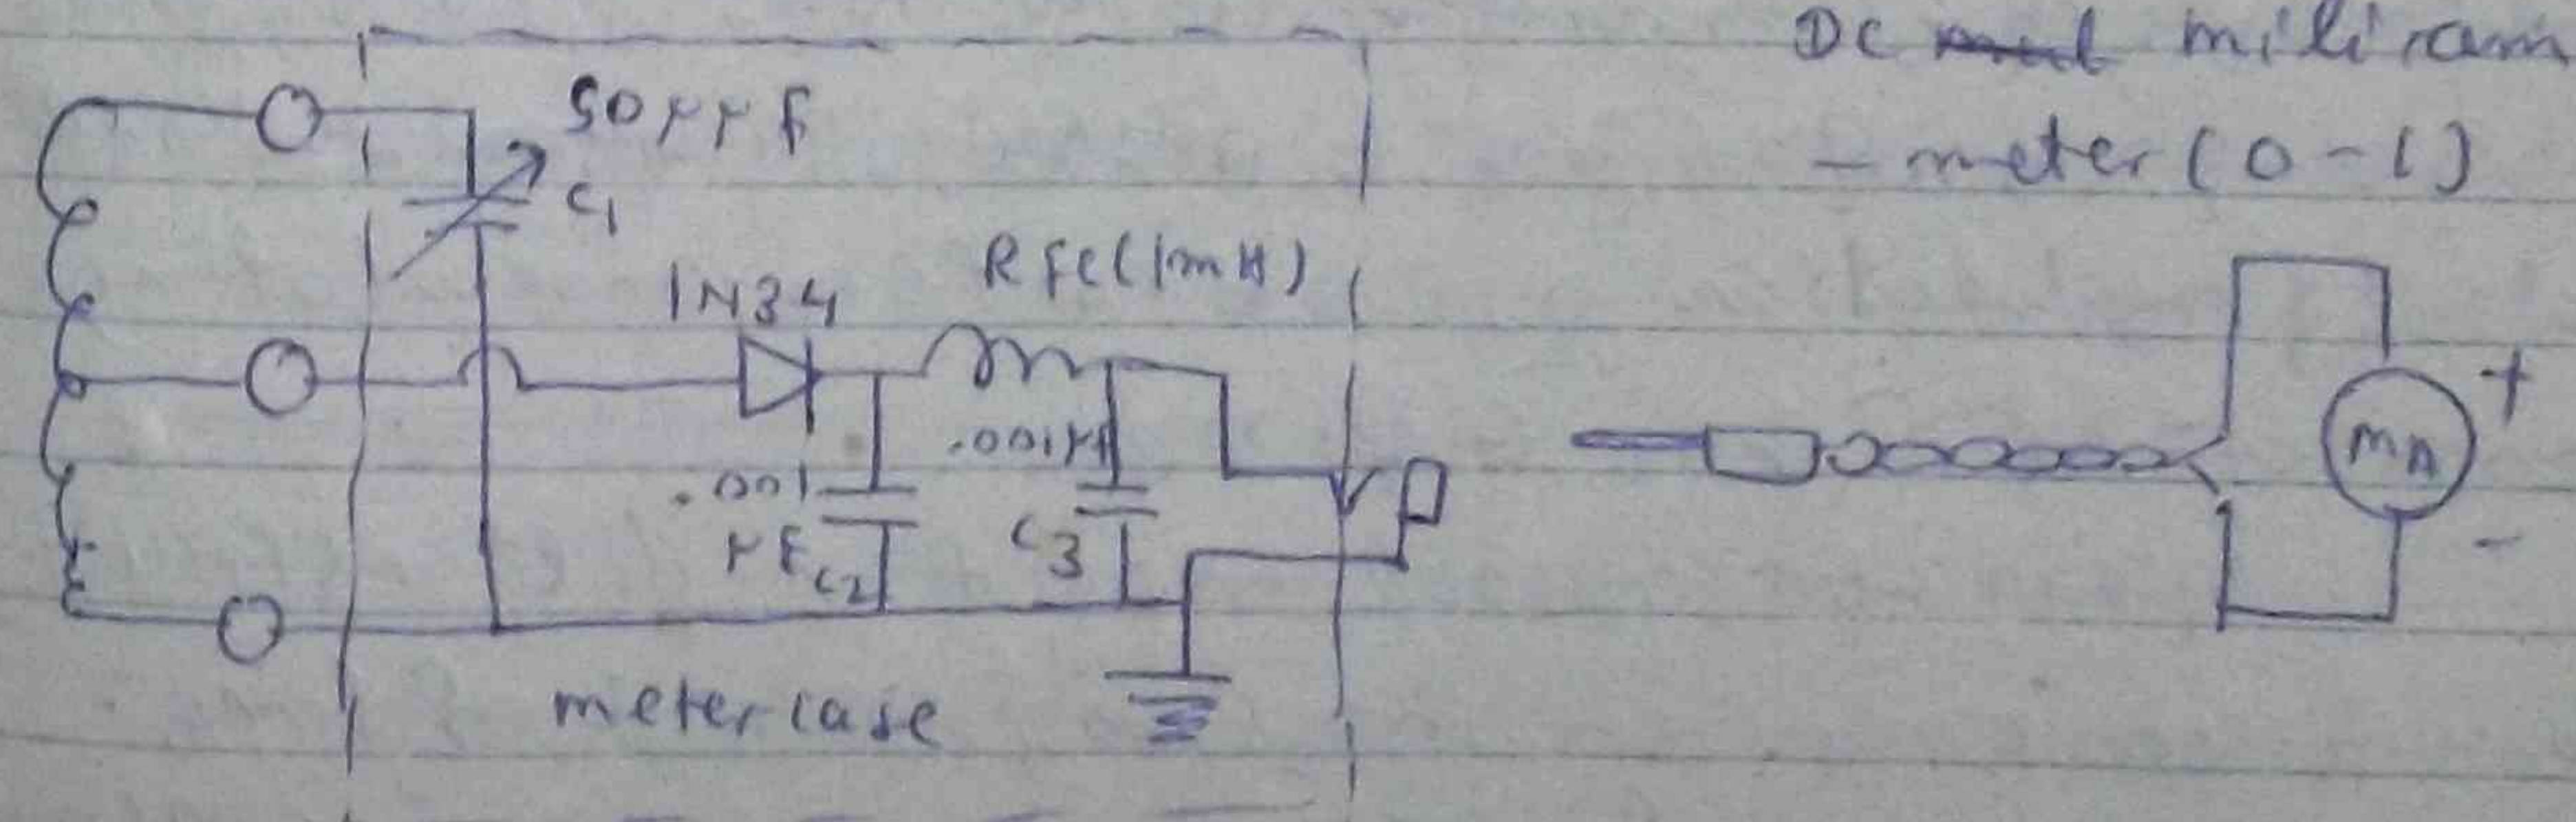 DC miliam
- meter (0-1)
50 μμf
C1
RFC (1mH)
1N34
.001μf
.001
μF C2
C3
+
MA
-
meter case